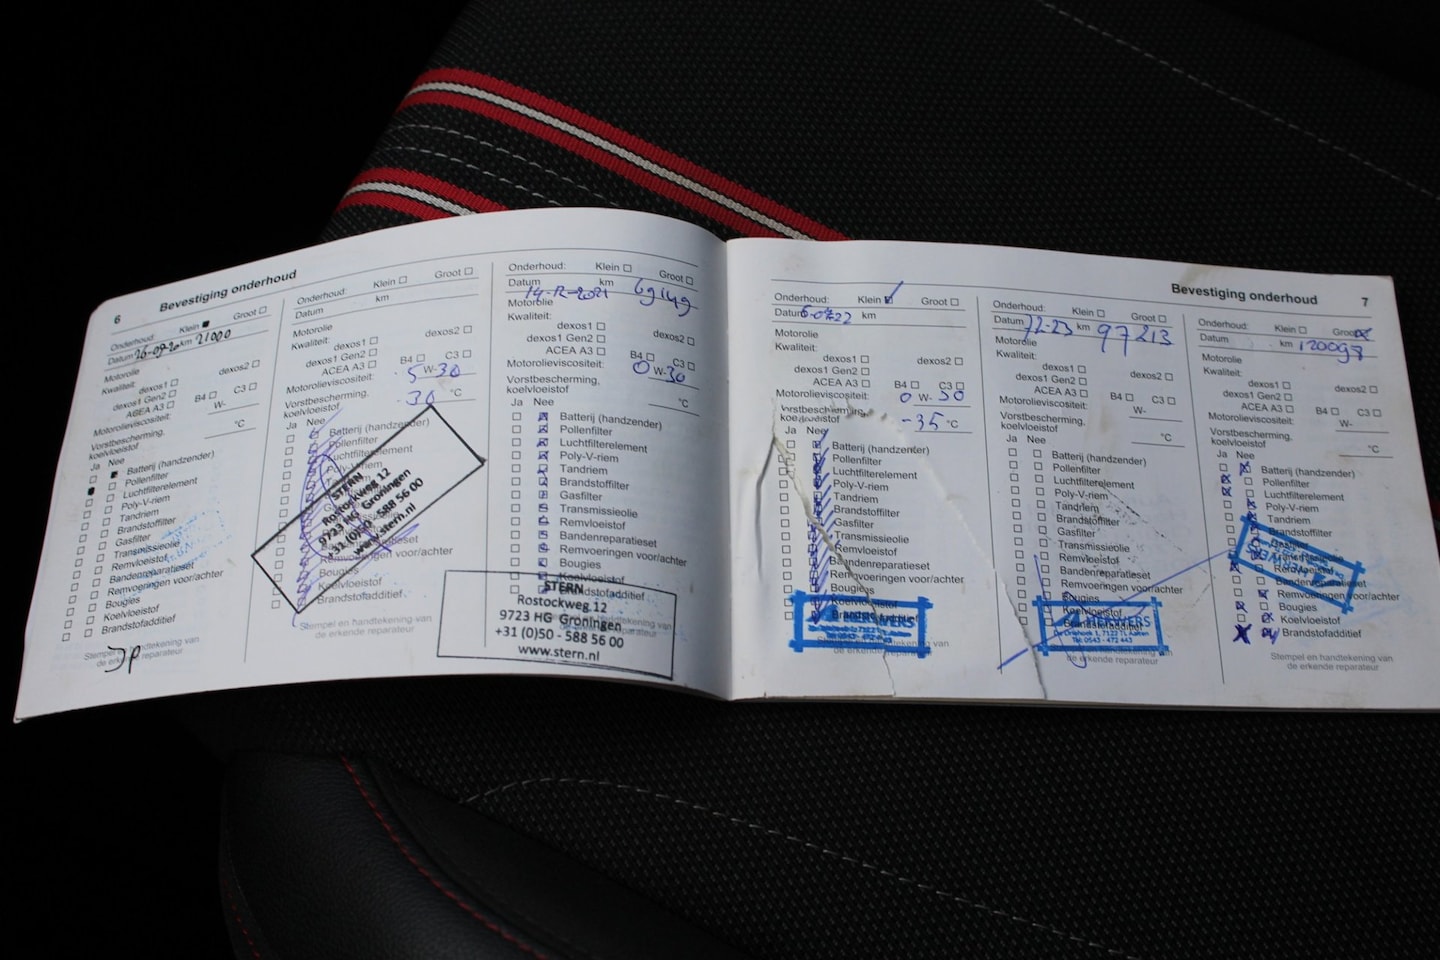 6 Bevestiging onderhoud
Onderhoud: Klein Groot
Datum 26-09-20 km 21000
Motorolie
Kwaliteit:
dexos1 dexos2
dexos1 Gen2
ACEA A3 B4 C3
Motorolieviscositeit: W-
Vorstbescherming,
koelvloeistof °C
Ja Nee
Batterij (handzender)
Pollenfilter
Luchtfilterelement
Poly-V-riem
Tandriem
Brandstoffilter
Gasfilter
Transmissieolie
Remvloeistof
Bandenreparatieset
Remvoeringen voor/achter
Bougies
Koelvloeistof
Brandstofadditief
Stempel en handtekening van
de erkende reparateur
JP
Onderhoud: Klein Groot
Datum km
Motorolie
Kwaliteit:
dexos1 dexos2
dexos1 Gen2
ACEA A3 B4 C3
Motorolieviscositeit: 5 W-30
Vorstbescherming,
koelvloeistof 30 °C
Ja Nee
Batterij (handzender)
Pollenfilter
Luchtfilterelement
Poly-V-riem
STERN
Rostockweg 12
9723 HG Groningen
+31 (0)50 - 588 56 00
www.stern.nl
Remvoeringen voor/achter
Bougies
Koelvloeistof
Brandstofadditief
Stempel en handtekening van
de erkende reparateur
Onderhoud: Klein Groot
Datum 14-12-2021 km 69149
Motorolie
Kwaliteit:
dexos1 dexos2
dexos1 Gen2
ACEA A3 B4 C3
Motorolieviscositeit: 0 W-30
Vorstbescherming,
koelvloeistof °C
Ja Nee
Batterij (handzender)
Pollenfilter
Luchtfilterelement
Poly-V-riem
Tandriem
Brandstoffilter
Gasfilter
Transmissieolie
Remvloeistof
Bandenreparatieset
Remvoeringen voor/achter
Bougies
Koelvloeistof
Brandstofadditief
STERN
Rostockweg 12
9723 HG Groningen
+31 (0)50 - 588 56 00
www.stern.nl
Bevestiging onderhoud 7
Onderhoud: Klein Groot
Datum km
Motorolie
Kwaliteit:
dexos1 dexos2
dexos1 Gen2
ACEA A3 B4 C3
Motorolieviscositeit: 0 W-30
Vorstbescherming,
koelvloeistof -35 °C
Ja Nee
Batterij (handzender)
Pollenfilter
Luchtfilterelement
Poly-V-riem
Tandriem
Brandstoffilter
Gasfilter
Transmissieolie
Remvloeistof
Bandenreparatieset
Remvoeringen voor/achter
Bougies
Koelvloeistof
Brandstofadditief
de erkende reparateur
Onderhoud: Klein Groot
Datum 12-23 km 97213
Motorolie
Kwaliteit:
dexos1 dexos2
dexos1 Gen2
ACEA A3 B4 C3
Motorolieviscositeit: W-
Vorstbescherming,
koelvloeistof °C
Ja Nee
Batterij (handzender)
Pollenfilter
Luchtfilterelement
Poly-V-riem
Tandriem
Brandstoffilter
Gasfilter
Transmissieolie
Remvloeistof
Bandenreparatieset
Remvoeringen voor/achter
Bougies
Koelvloeistof
Brandstofadditief
de erkende reparateur
Onderhoud: Klein Groot
Datum km 120097
Motorolie
Kwaliteit:
dexos1 dexos2
dexos1 Gen2
ACEA A3 B4 C3
Motorolieviscositeit: W-
Vorstbescherming,
koelvloeistof °C
Ja Nee
Batterij (handzender)
Pollenfilter
Luchtfilterelement
Poly-V-riem
Tandriem
Brandstoffilter
Remvloeistof
Bandenreparatieset
Remvoeringen voor/achter
Bougies
Koelvloeistof
Brandstofadditief
Stempel en handtekening van
de erkende reparateur